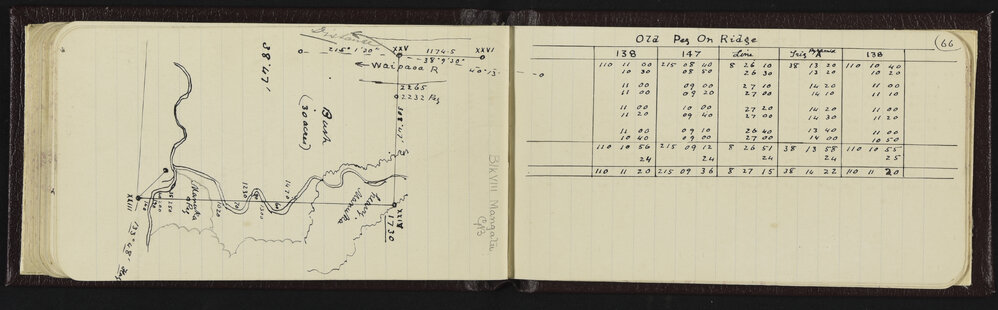 215° 1' 20" XXV 1174.5 XXVI
38° 9' 30"
← Waipaoa R
2265
2232 Peg
38° 47'
308° 47'
Bush
(30 acres)
XXIII
Manuka
1420
1230
1200
1420
Heavy
Manuka
XXIV
1730
133° 48'
Blk VIII Mangatu
66
Old Peg On Ridge
138 147 Line Trig Pyramid A 138
110 11 00 215 08 40 8 26 10 38 13 20 110 10 40
10 30 08 50 26 30 13 20 10 20
11 00 09 00 27 10 14 20 11 00
11 00 09 20 27 00 14 10 11 10
11 00 10 00 27 20 14 20 11 00
11 20 09 40 27 00 14 30 11 20
11 00 09 10 26 40 13 40 11 00
10 40 09 00 27 00 14 00 10 50
110 10 56 215 09 12 8 26 51 38 13 58 110 10 55
24 24 24 24 25
110 11 20 215 09 36 8 27 15 38 14 22 110 11 20